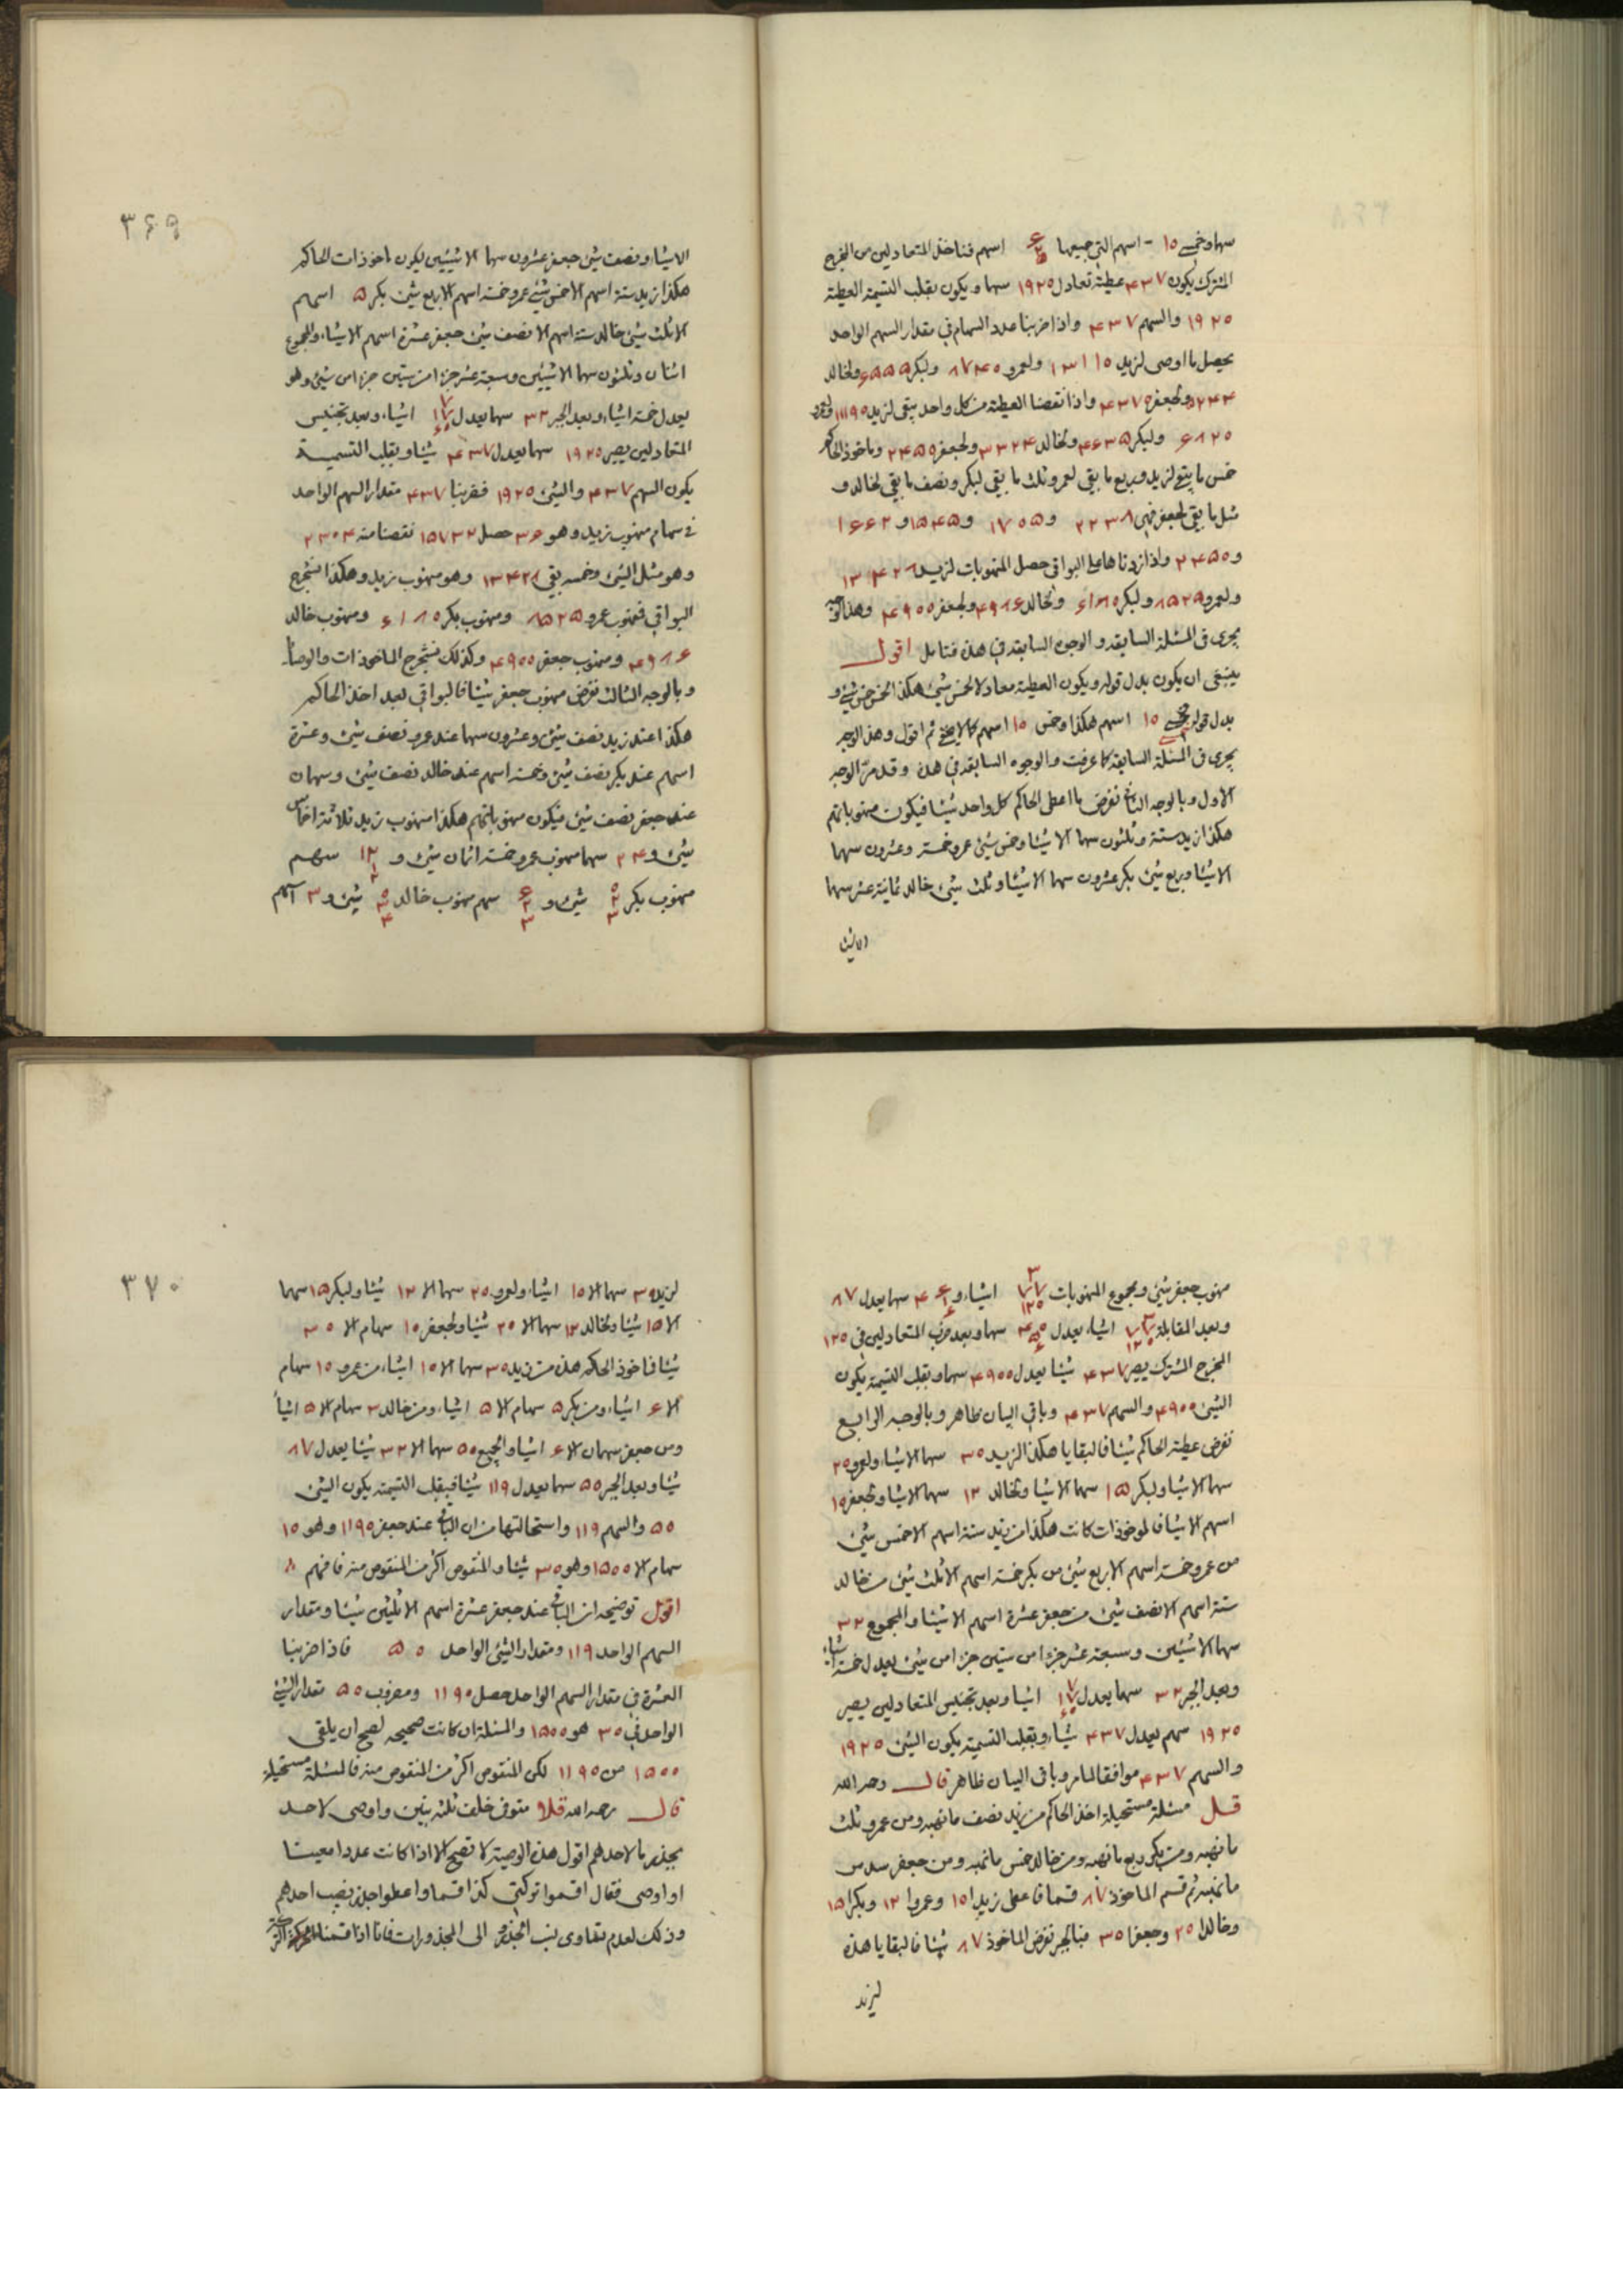 سهما و خمسى ١٥ اسهم التى جميعها اسهم فناخذ المتعادلين من المخرج
المشترك يكون ٤٣٧ عطية تعادل ١٩٢٥ سهما و يكون بقلب التسمية العطية
١٩٢٥ والسهم ٤٣٧ واذا ضربنا عدد السهام فى مقدار السهم الواحد
يحصل ما اوصى لزيد ١٣١١٥ ولعمرو ٨٧٤٥ ولبكر ٦٥٥٥ ولخالد
٥٢٤٤ ولجعفر ٤٣٧٥ واذا نقصنا العطية من كل واحد يبقى لزيد ١١١٩٥ ولعمرو
٦٨٢٥ ولبكر ٤٦٣٥ ولخالد ٣٣٢٤ ولجعفر ٢٤٥٥ وماخوذ الحاكم
خمس ما بقى لزيد و ربع ما بقى لعمرو و ثلث ما بقى لبكر و نصف ما بقى لخالد و
مثل ما بقى لجعفر فهى ٢٢٣٨ و ١٧٠٥ و ١٥٤٥ و ١٦٦٢
و ٢٤٥٥ واذا زدناها على البواقى حصل المنهوبات لزيد ١٣٤٢٨
ولعمرو ٨٥٢٥ ولبكر ٦١٨٥ ولخالد ٤٩٨٦ ولجعفر ٤٩٥٥ وهذا الوجه
يجرى فى المسئلة السابقة و الوجوه السابقة فى هذه فتامل اقول
ينبغى ان يكون بدل قوله و يكون العطية معادلا لخمس شئ هكذا الخمس خمس شئ و
بدل قوله خمسى ١٥ اسهم هكذا و خمس ١٥ اسهم كما لا يخفى ثم اقول و هذا الوجه
يجرى فى المسئلة السابقة كما عرفت و الوجوه السابقة فى هذه و قد مرّ الوجه
الاول و بالوجه الثانى نفرض ما اعطى الحاكم كل واحد شيئا فيكون منهوباتهم
هكذا زيد ستة و ثلثون سهما الا شيئا و خمس شئ عمرو خمسة و عشرون سهما
الا شيئا و ربع شئ بكر عشرون سهما الا شيئا و ثلث شئ خالد ثمانية عشر سهما
الا شيئا
٣٦٩
الا شيئا و نصف شئ جعفر عشرون سهما الا شيئين ليكون ماخوذات الحاكم
هكذا زيد ستة اسهم الا خمس شئ عمرو خمسة اسهم الا ربع شئ بكر ٥ اسهم
الا ثلث شئ خالد ستة اسهم الا نصف شئ جعفر عشرة اسهم الا شيئا و المجموع
اثنان و ثلثون سهما الا شيئين و سبعة عشر جزءا من ستين جزءا من شئ و هو
يعدل خمسة اشياء و بعد الجبر ٣٢ سهما يعدل اشياء و بعد تجنيس
المتعادلين يصير ١٩٢٥ سهما يعدل ٤٣٧ شيئا و بقلب التسمية
يكون السهم ٤٣٧ والشئ ١٩٢٥ فضربنا ٤٣٧ مقدار السهم الواحد
فى سهام منهوب زيد و هو ٣٦ حصل ١٥٧٣٢ نقصنا منه ٢٣٠٤
و هو مثل الشئ و خمسه بقى ١٣٤٢٨ و هو منهوب زيد و هكذا نستخرج
البواقى فمنهوب عمرو ٨٥٢٥ و منهوب بكر ٦١٨٥ و منهوب خالد
٤٩٨٦ و منهوب جعفر ٤٩٥٥ و كذلك نستخرج الماخوذات والوصايا
و بالوجه الثالث نفرض منهوب جعفر شيئا فالبواقى بعد اخذ الحاكم
هكذا عند زيد نصف شئ و عشرون سهما عند عمرو نصف شئ و عشرة
اسهم عند بكر نصف شئ و خمسة اسهم عند خالد نصف شئ و سهمان
عند جعفر نصف شئ فيكون منهوباتهم هكذا منهوب زيد ثلاثة اخماس
شئ و ٢٤ سهما منهوب عمرو خمسة اثمان شئ و سهم
منهوب بكر شئ و سهم منهوب خالد شئ و ٣ اسهم
منهوب جعفر شئ و مجموع المنهوبات اشياء و سهما يعدل ٨٧
و بعد المقابلة اشياء يعدل سهما و بعد ضرب المتعادلين فى ١٢٥
المخرج المشترك يصير ٤٣٧ شيئا يعدل ٤٩٥٥ سهما و بقلب التسمية يكون
الشئ ٤٩٥٥ والسهم ٤٣٧ و باقى البيان ظاهر و بالوجه الرابع
نفرض عطية الحاكم شيئا فالبقايا هكذا لزيد ٣٥ سهما الا شيئا و لعمرو ٢٥
سهما الا شيئا و لبكر ١٥ سهما الا شيئا و لخالد ١٢ سهما الا شيئا و لجعفر ١٥
اسهم الا شيئا فالموخوذات كانت هكذا من زيد ستة اسهم الا خمس شئ
من عمرو خمسة اسهم الا ربع شئ من بكر خمسة اسهم الا ثلث شئ من خالد
ستة اسهم الا نصف شئ من جعفر عشرة اسهم الا شيئا و المجموع ٣٢
سهما الا شيئين و سبعة عشر جزءا من ستين جزءا من شئ يعدل خمسة اشياء
و بعد الجبر ٣٢ سهما يعدل اشياء و بعد تجنيس المتعادلين يصير
١٩٢٥ سهم يعدل ٤٣٧ شيئا و بقلب التسمية يكون الشئ ١٩٢٥
والسهم ٤٣٧ موافقا لما مر و باقى البيان ظاهر قال رحمه الله
مسئلة مستحيلة اخذ الحاكم من زيد نصف ما نهبه و من عمرو ثلث
ما نهبه و من بكر ربع ما نهبه و من خالد خمس ما نهبه و من جعفر سدس
ما نهبه ثم قسم الماخوذ ٨٧ قسما فاعطى زيدا ١٥ و عمروا ١٢ و بكرا ١٥
و خالدا ٢٥ و جعفرا ٣٥ فبالجبر نفرض الماخوذ ٨٧ شيئا فالبقايا هذه
لزيد
٣٧٠
لزيد ٣٥ سهما الا ١٥ اشياء و لعمرو ٢٥ سهما الا ١٢ شيئا و لبكر ١٥ سهما
الا ١٥ شيئا و لخالد ١٢ سهما الا ٢٥ شيئا و لجعفر ١٥ سهام الا ٣٥
شيئا فماخوذ الحاكم هذه من زيد ٣٥ سهما الا ١٥ اشياء من عمرو ١٥ سهام
الا ٦ اشياء و من بكر ٥ سهام الا ٥ اشياء و من خالد ٣ سهام الا ٥ اشياء
و من جعفر سهمان الا ٦ اشياء والجميع ٥٥ سهما الا ٣٢ شيئا يعدل ٨٧
شيئا و بعد الجبر ٥٥ سهما يعدل ١١٩ شيئا فبقلب التسمية يكون الشئ
٥٥ والسهم ١١٩ و استحالتها من ان الباقى عند جعفر ١١٩٥ و هو ١٥
سهام الا ١٥٥٥ و هو ٣٥ شيئا و المنقوص اكثر من المنقوص منه فافهم
اقول توضيحه ان الباقى عند جعفر عشرة اسهم الا ثلثين شيئا و مقدار
السهم الواحد ١١٩ و مقدار الشئ الواحد ٥٥ فاذا ضربنا
العشرة فى مقدار السهم الواحد حصل ١١٩٥ و مضروب ٥٥ مقدار الشئ
الواحد فى ٣٥ هو ١٥٥٥ والمسئلة ان كانت صحيحة لصح ان يلقى
١٥٥٥ من ١١٩٥ لكن المنقوص اكثر من المنقوص منه فالمسئلة مستحيلة
قال رحمه الله متوفى خلف ثلثة بنين و اوصى لاحد
بجذر ما لاحدهم اقول هذه الوصية لا تصح الا اذا كانت عددا معينا
او اوصى فقال اقسموا تركتى كذا قسما و اعطوا جذر نصيب احدهم
و ذلك لعدم تساوى نسب الجذور الى المجذورات فانا اذا قسمنا